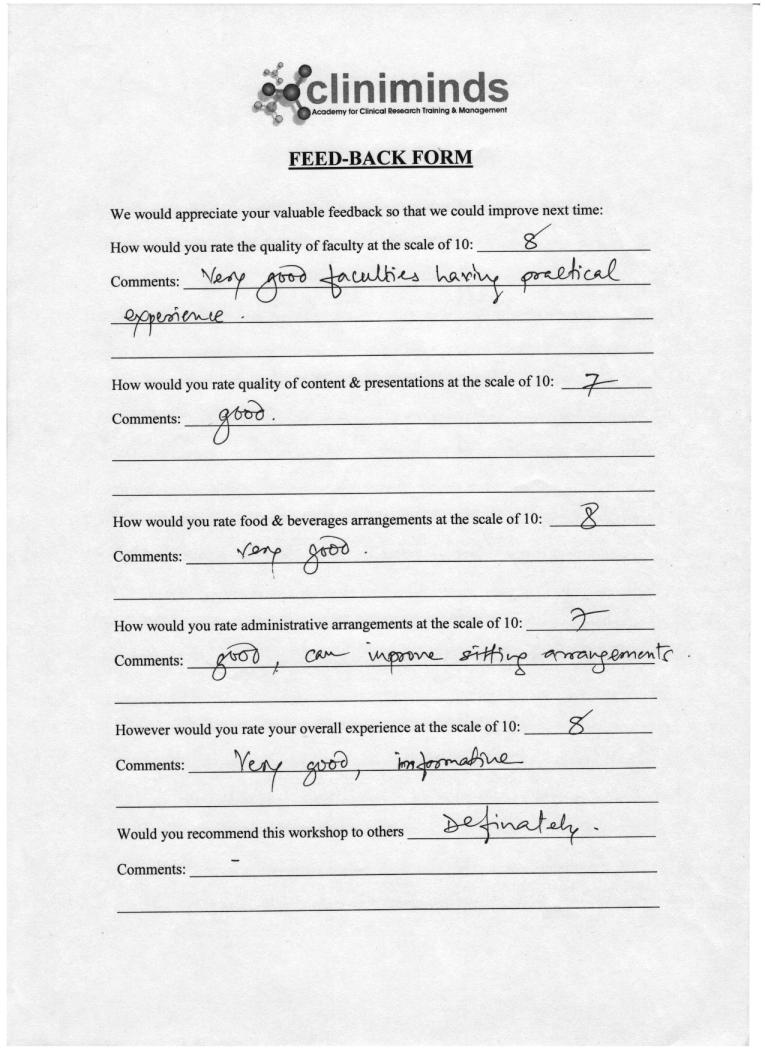 cliniminds
Academy for Clinical Research Training & Management
FEED-BACK FORM
We would appreciate your valuable feedback so that we could improve next time:
How would you rate the quality of faculty at the scale of 10: 8
Comments: Very good faculties having practical
experience.
How would you rate quality of content & presentations at the scale of 10: 7
Comments: good.
How would you rate food & beverages arrangements at the scale of 10: 8
Comments: very good.
How would you rate administrative arrangements at the scale of 10: 7
Comments: good, can improve sitting arrangements.
However would you rate your overall experience at the scale of 10: 8
Comments: Very good, informative
Would you recommend this workshop to others Definately.
Comments: -